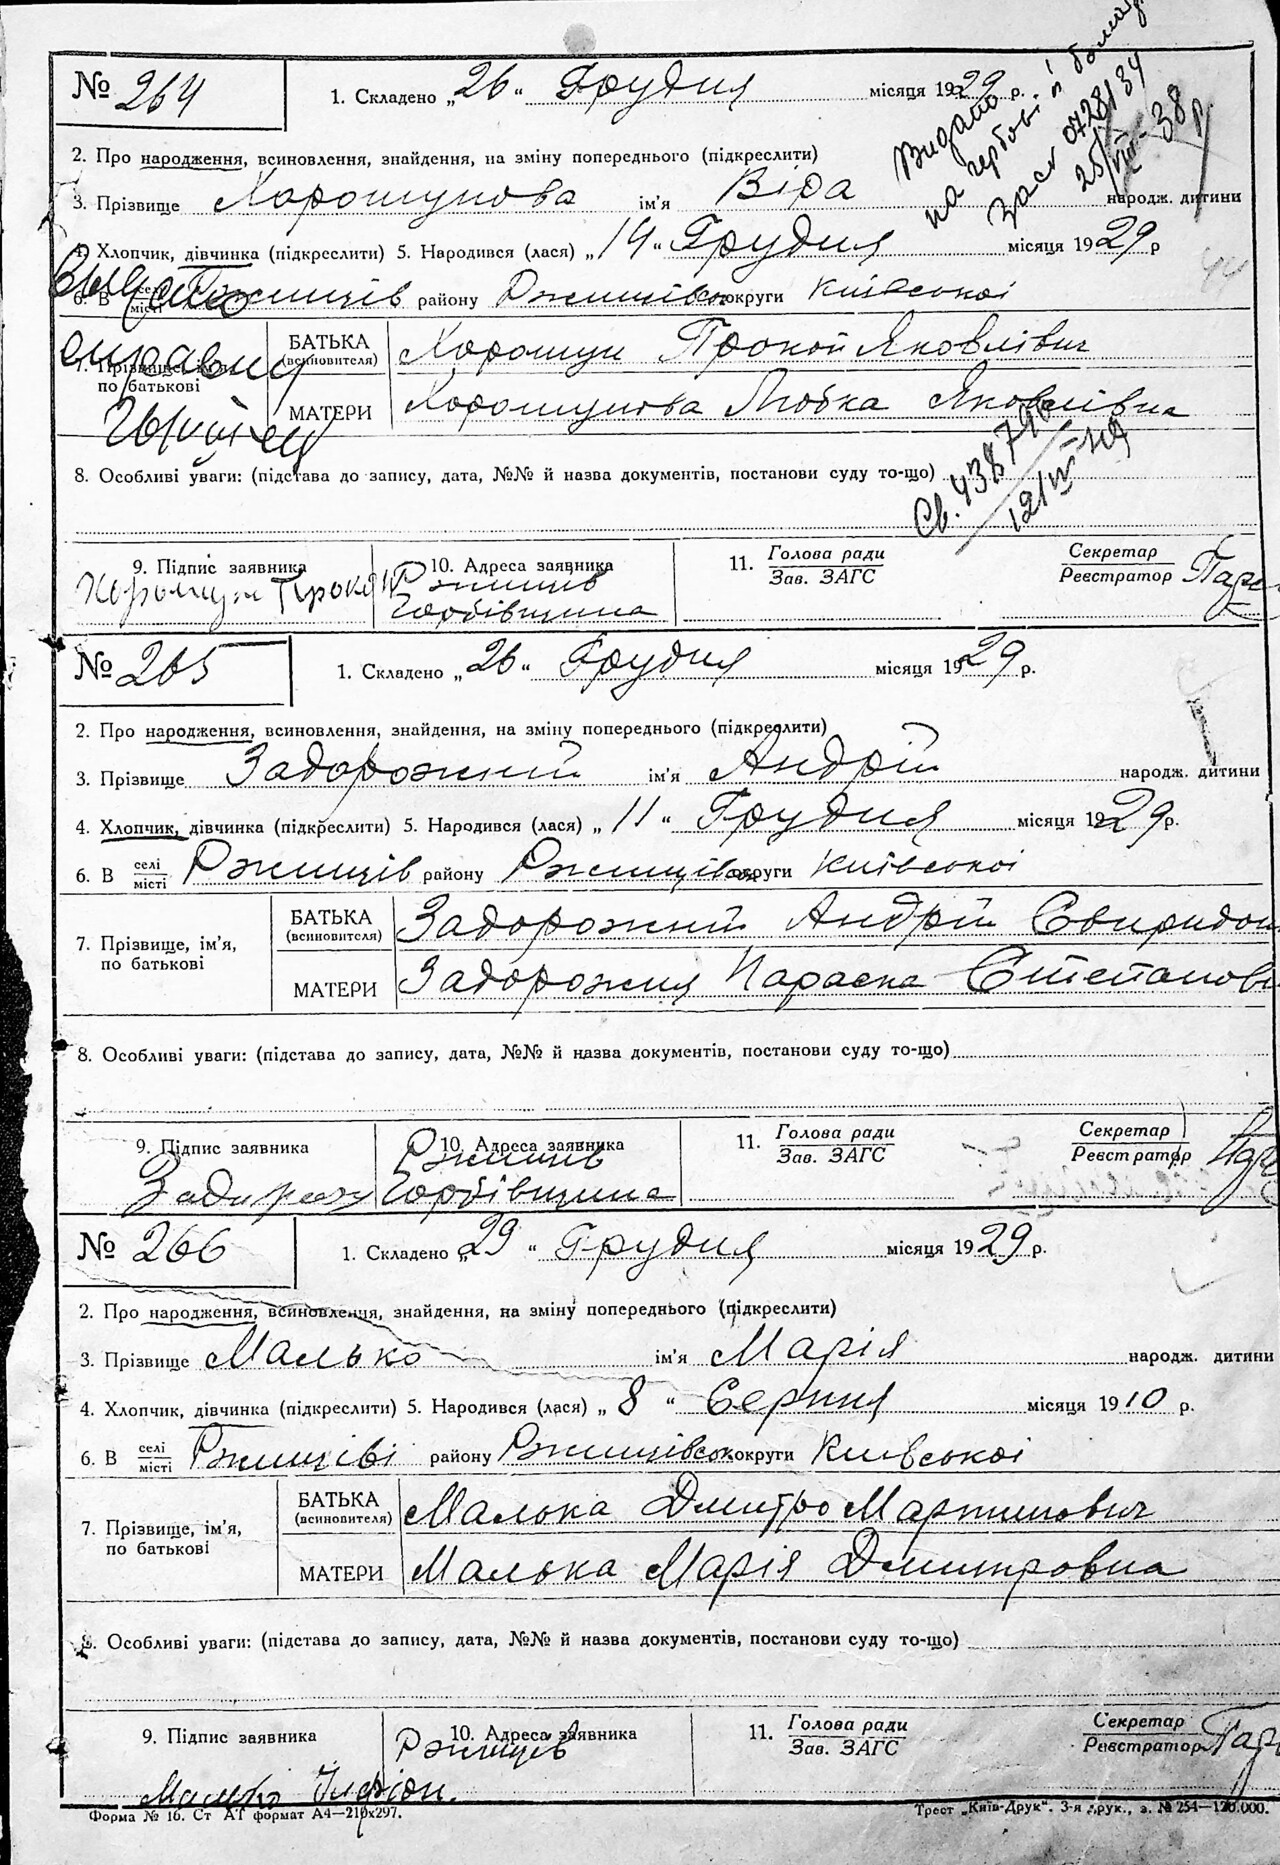 № 264
1. Складено „26“ Грудня місяця 1929 р.
Видано
на гербові
Засл 0728134
25/VIII-38 р.
2. Про народження, всиновлення, знайдення, на зміну попереднього (підкреслити)
3. Прізвище Хорошунова ім'я Віра народж. дитини
4. Хлопчик, дівчинка (підкреслити) 5. Народився (лася) „14“ Грудня місяця 1929 р
44
6. В селі місті Ржищів району Ржищівськ округи Київської
БАТЬКА (всиновителя) Хорошун Прокоп Яковлівич
7. Прізвище, ім'я, по батькові
МАТЕРИ Хорошунова Любка Яковлівна
8. Особливі уваги: (підстава до запису, дата, №№ й назва документів, постанови суду то-що)
9. Підпис заявника
Хорошун Прокоп
10. Адреса заявника
Ржищів
Горбівщина
11. Голова ради
Зав. ЗАГС
Секретар
Реестратор
№ 265
1. Складено „26“ Грудня місяця 1929 р.
2. Про народження, всиновлення, знайдення, на зміну попереднього (підкреслити)
3. Прізвище Задорожний ім'я Андрій народж. дитини
4. Хлопчик, дівчинка (підкреслити) 5. Народився (лася) „11“ Грудня місяця 1929 р.
6. В селі місті Ржищів району Ржищівськ округи Київської
БАТЬКА (всиновителя) Задорожний Андрій Свиридон
7. Прізвище, ім'я, по батькові
МАТЕРИ Задорожня Параска Степанов
8. Особливі уваги: (підстава до запису, дата, №№ й назва документів, постанови суду то-що)
9. Підпис заявника
10. Адреса заявника
Ржищів
Горбівщина
11. Голова ради
Зав. ЗАГС
Секретар
Реестратор
№ 266
1. Складено „29“ Грудня місяця 1929 р.
2. Про народження, всиновлення, знайдення, на зміну попереднього (підкреслити)
3. Прізвище Малько ім'я Марія народж. дитини
4. Хлопчик, дівчинка (підкреслити) 5. Народився (лася) „8“ Серпня місяця 1910 р.
6. В селі місті Ржищіві району Ржищівськ округи Київської
БАТЬКА (всиновителя) Малька Дмитро Мартинович
7. Прізвище, ім'я, по батькові
МАТЕРИ Малька Марія Дмитровна
8. Особливі уваги: (підстава до запису, дата, №№ й назва документів, постанови суду то-що)
9. Підпис заявника
Малько
10. Адреса заявника
Ржищів
11. Голова ради
Зав. ЗАГС
Секретар
Реестратор
Форма № 16. Ст АТ формат А4—210х297.
Трест „Київ-Друк“. 3-я друк., з. № 254—120.000.